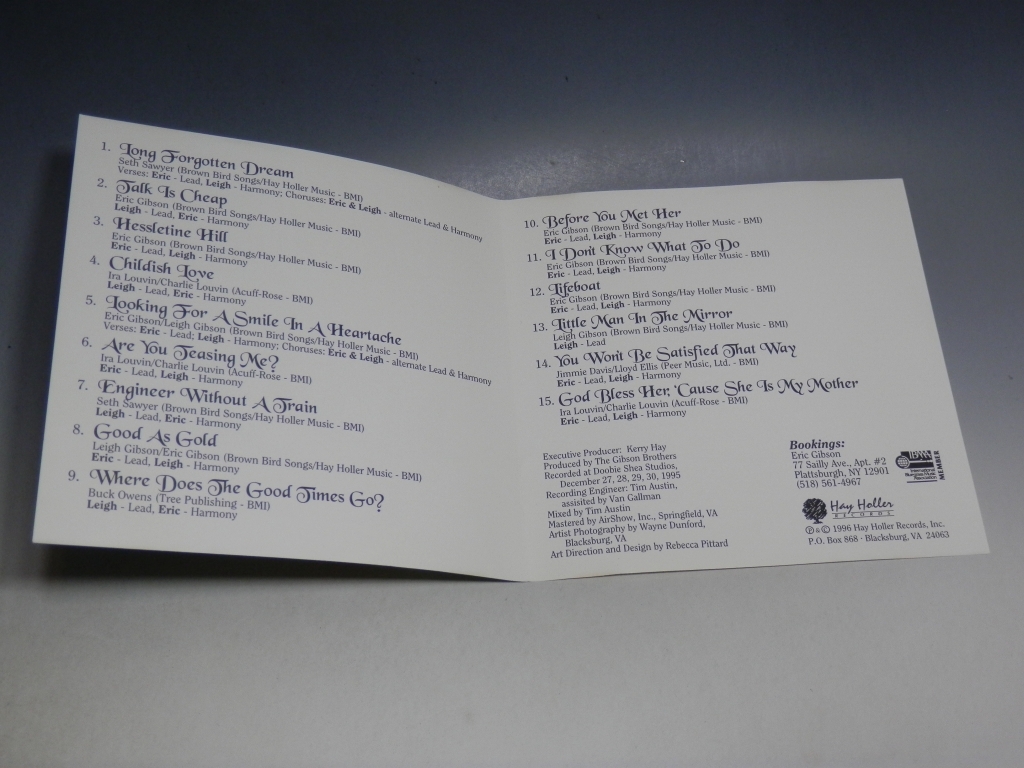 1. Long Forgotten Dream
Seth Sawyer (Brown Bird Songs/Hay Holler Music - BMI)
Verses: Eric - Lead, Leigh - Harmony; Choruses: Eric & Leigh - alternate Lead & Harmony
2. Talk Is Cheap
Eric Gibson (Brown Bird Songs/Hay Holler Music - BMI)
Leigh - Lead, Eric - Harmony
3. Hessletine Hill
Eric Gibson (Brown Bird Songs/Hay Holler Music - BMI)
Eric - Lead, Leigh - Harmony
4. Childish Love
Ira Louvin/Charlie Louvin (Acuff-Rose - BMI)
Leigh - Lead, Eric - Harmony
5. Looking For A Smile In A Heartache
Eric Gibson/Leigh Gibson (Brown Bird Songs/Hay Holler Music - BMI)
Verses: Eric - Lead; Leigh - Harmony; Choruses: Eric & Leigh - alternate Lead & Harmony
6. Are You Teasing Me?
Ira Louvin/Charlie Louvin (Acuff-Rose - BMI)
Eric - Lead, Leigh - Harmony
7. Engineer Without A Train
Seth Sawyer (Brown Bird Songs/Hay Holler Music - BMI)
Leigh - Lead, Eric - Harmony
8. Good As Gold
Leigh Gibson/Eric Gibson (Brown Bird Songs/Hay Holler Music - BMI)
Eric - Lead, Leigh - Harmony
9. Where Does The Good Times Go?
Buck Owens (Tree Publishing - BMI)
Leigh - Lead, Eric - Harmony
10. Before You Met Her
Eric Gibson (Brown Bird Songs/Hay Holler Music - BMI)
Eric - Lead, Leigh - Harmony
11. I Don't Know What To Do
Eric Gibson (Brown Bird Songs/Hay Holler Music - BMI)
Eric - Lead, Leigh - Harmony
12. Lifeboat
Eric Gibson (Brown Bird Songs/Hay Holler Music - BMI)
Eric - Lead, Leigh - Harmony
13. Little Man In The Mirror
Leigh Gibson (Brown Bird Songs/Hay Holler Music - BMI)
Leigh - Lead
14. You Won't Be Satisfied That Way
Jimmie Davis/Lloyd Ellis (Peer Music, Ltd. - BMI)
Eric - Lead, Leigh - Harmony
15. God Bless Her, 'Cause She Is My Mother
Ira Louvin/Charlie Louvin (Acuff-Rose - BMI)
Eric - Lead, Leigh - Harmony
Executive Producer: Kerry Hay
Produced by The Gibson Brothers
Recorded at Doobie Shea Studios,
December 27, 28, 29, 30, 1995
Recording Engineer: Tim Austin,
assisited by Van Gallman
Mixed by Tim Austin
Mastered by AirShow, Inc., Springfield, VA
Artist Photography by Wayne Dunford,
Blacksburg, VA
Art Direction and Design by Rebecca Pittard
Bookings:
Eric Gibson
77 Sailly Ave., Apt. #2
Plattsburgh, NY 12901
(518) 561-4967
IBMA
International
Bluegrass Music
Association
MEMBER
Hay Holler
RECORDS
℗ & © 1996 Hay Holler Records, Inc.
P.O. Box 868 · Blacksburg, VA 24063